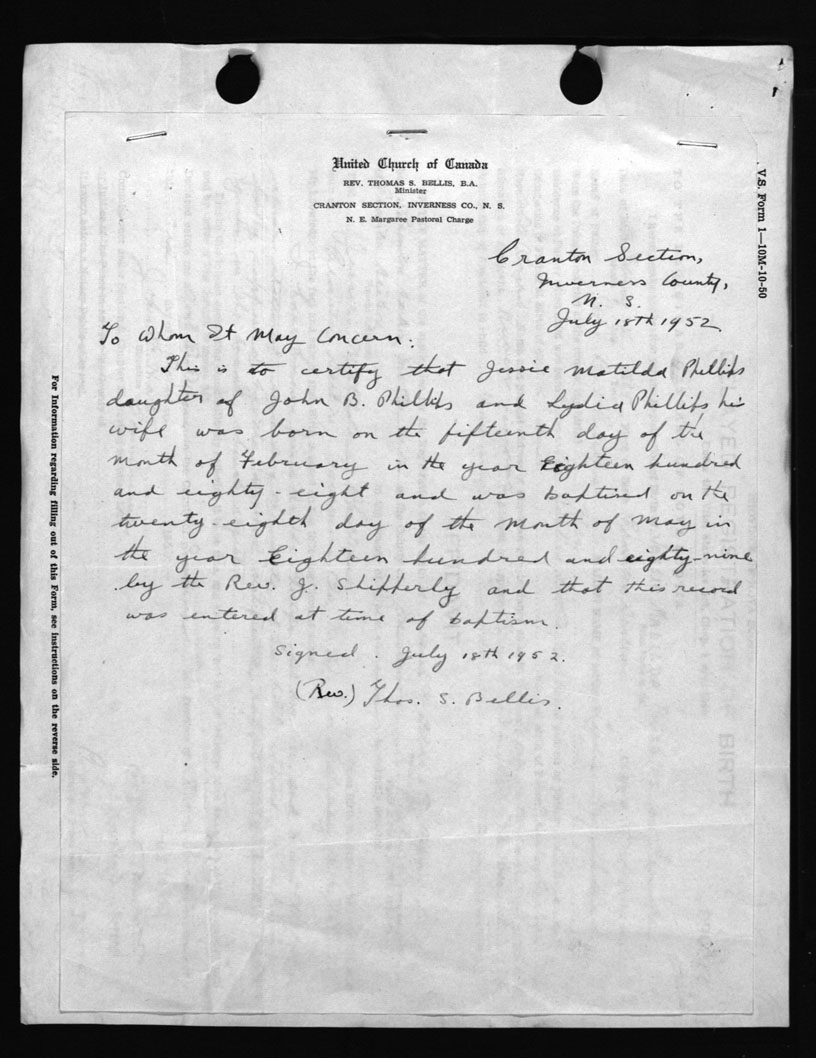 United Church of Canada
REV. THOMAS S. BELLIS, B.A.
Minister
CRANTON SECTION, INVERNESS CO., N. S.
N. E. Margaree Pastoral Charge
V.S. Form 1—10M-10-50
Cranton Section,
Inverness County,
N. S.
July 18th 1952.
To Whom It May Concern:
This is to certify that Jessie Matilda Phillips
daughter of John B. Phillips and Lydia Phillips his
wife was born on the fifteenth day of the
month of February in the year Eighteen hundred
and eighty-eight and was baptised on the
twenty-eighth day of the month of May in
the year Eighteen hundred and eighty-nine
by the Rev. J. Shipperly and that this record
was entered at time of baptism.
Signed. July 18th 1952.
(Rev.) Thos. S. Bellis.
For Information regarding filling out of this Form, see instructions on the reverse side.